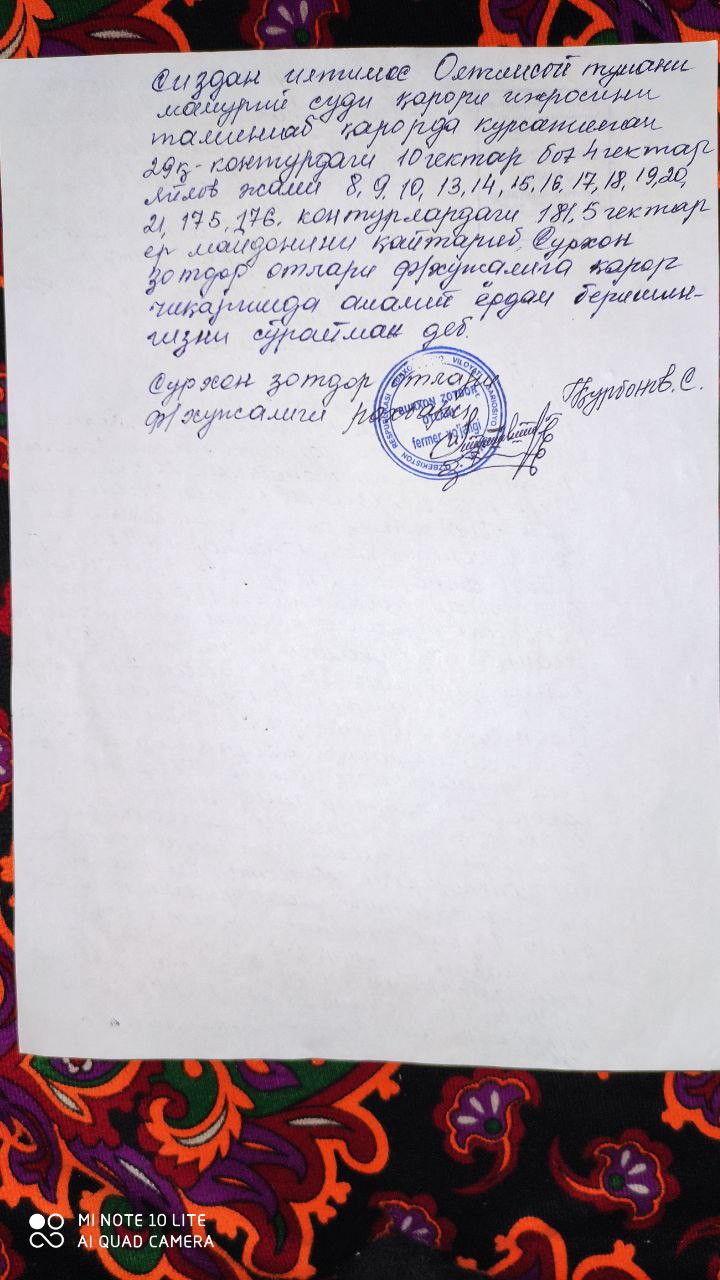 Сиздан илтимос Олтинсой тумани
маъмурий суди қарори ижросини
таминлаб қарорда курсатилган
29қ-контурдаги 10 гектар боғ 4 гектар
яйлов жами 8, 9, 10, 13, 14, 15, 16, 17, 18, 19, 20,
21, 175, 176, контурлардаги 181,5 гектар
ер майдонини қайтариб, Сурхон
зотдор отлари ф/хужалига қарор
чиқаришда амалий ёрдам беришин-
гизни сўрайман деб.
Сурхон зотдор отлари Қурбонов. С.
ф/хужалиги раҳбари
O'ZBEKISTON RESPUBLIKASI VILOYATI
SURXON ZOTDOR
OTLARI
fermer xo'jaligi
MI NOTE 10 LITE
AI QUAD CAMERA